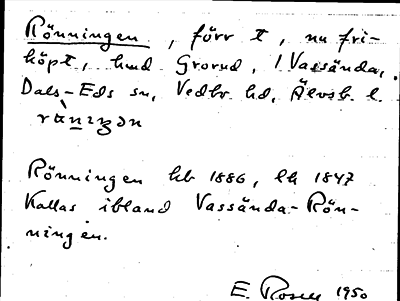 Rönningen, förr t, nu fri-
köpt, und Grorud, 1 Vassända,
Dals-Eds sn, Vedbo hd, Älvsb. l.
Rönningen hb 1886, lh 1847
Kallas ibland Vassända-Rön-
ningen.
E. Rosell 1950